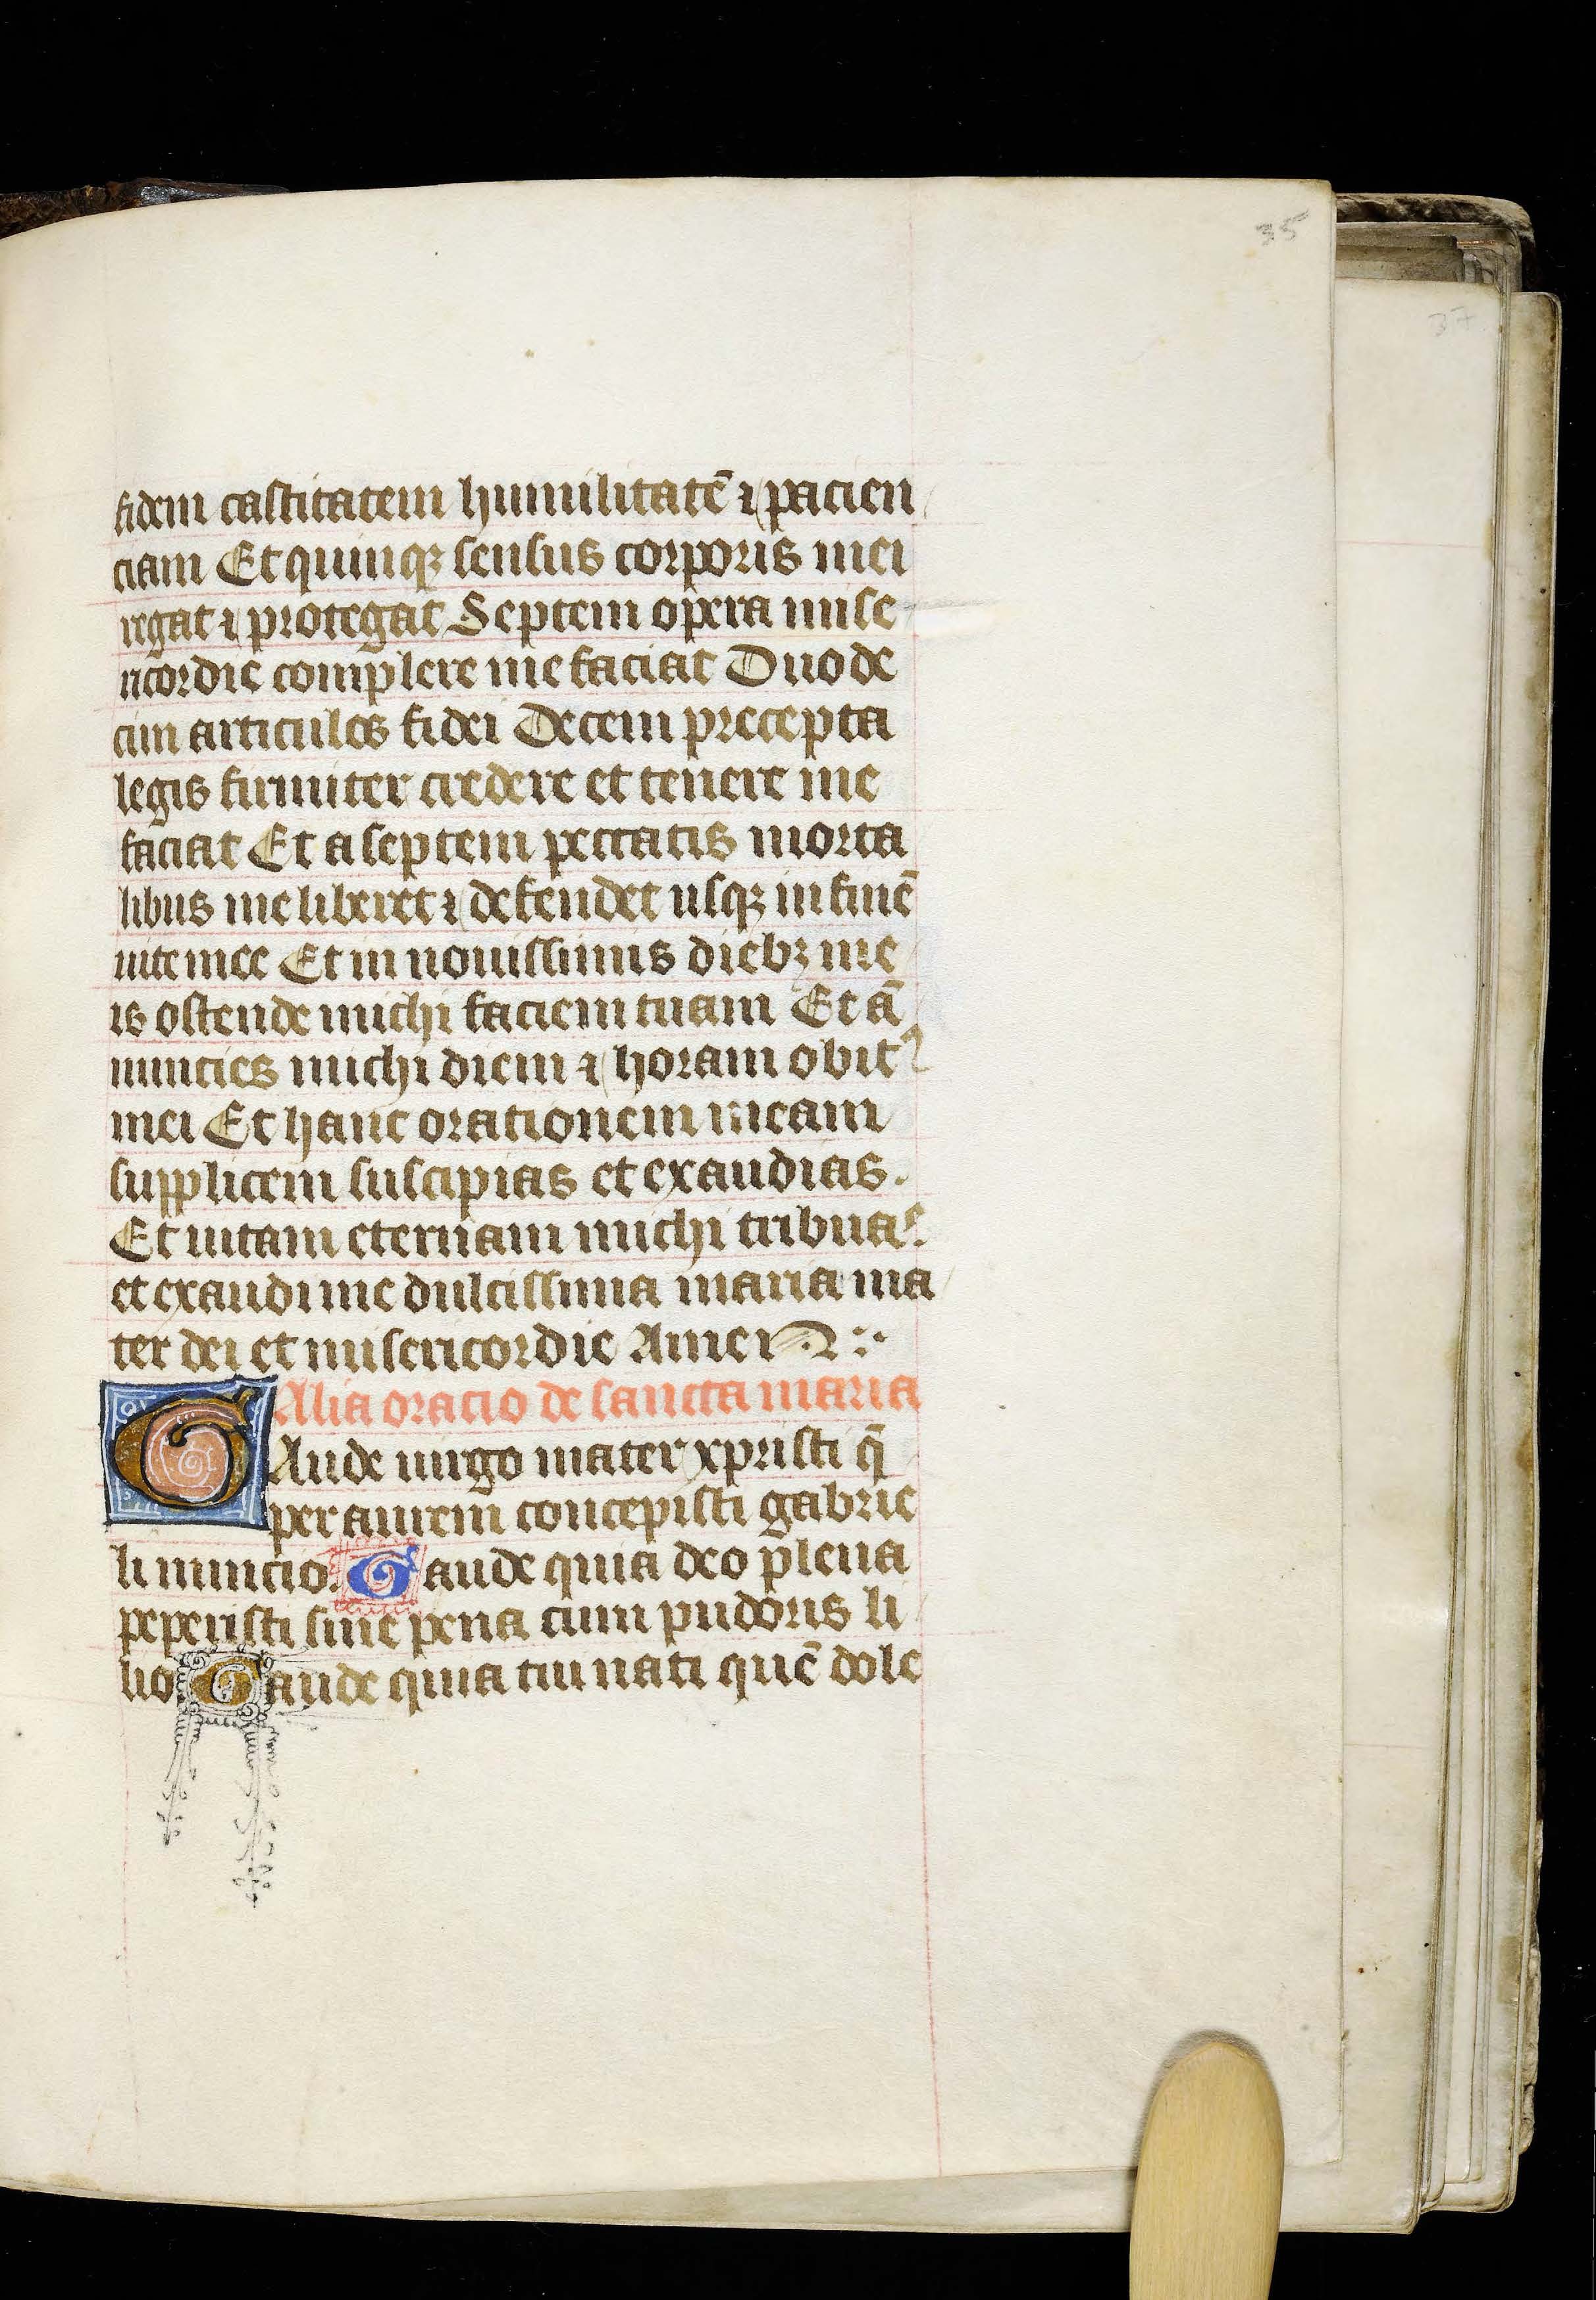 35
37
fidem castitatem humilitatē ⁊ pacien
ciam Et quinqꝫ sensus corporis mei
regat ⁊ protegat Septem opera mise
ricordie complere me faciat Duode
cim articulos fidei Decem precepta
legis firmiter credere et tenere me
faciat Et a septem peccatis morta
libus me liberet ⁊ defendet usqꝫ in finē
uite mee Et in nouissimis diebꝫ me
is ostende michi faciem tuam Et ā
nuncies michi diem ⁊ horam obitꝰ
mei Et hanc orationem meam
supplicem suscipias et exaudias.
Et uitam eternam michi tribuas.
et exaudi me dulcissima maria ma
ter dei et misericordie Amen
Alia oracio de sancta maria
GAude uirgo mater xpristi q̄
per aurem concepisti gabrie
li nuncio. Gaude quia deo plena
peperisti sine pena cum pudoris li
lio. Gaude quia tui nati quē dole